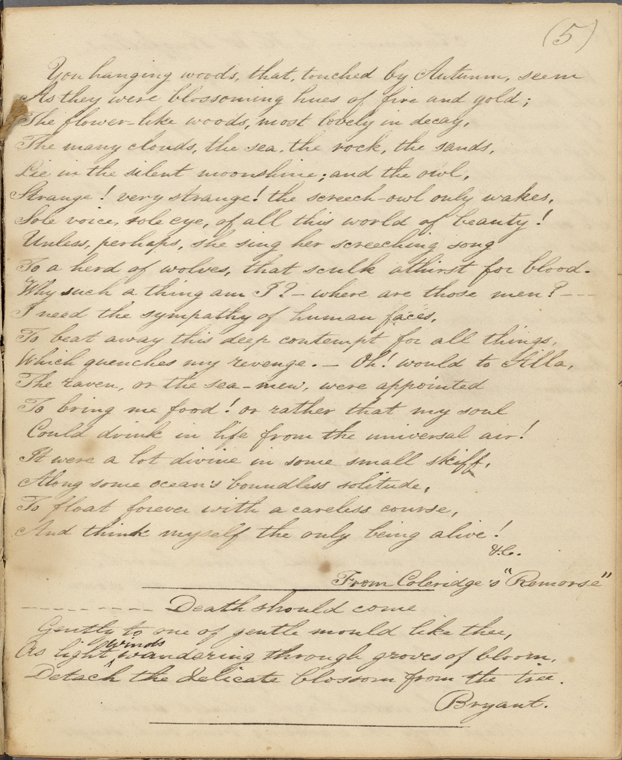 (5)
You hanging woods, that, touched by Autumn, seem
As they were blossoming hues of fire and gold;
The flower-like woods, most lovely in decay,
The many clouds, the sea, the rock, the sands,
Lie in the silent moonshine; and the owl,
Strange! very strange! the screech-owl only wakes,
Sole voice, sole eye, of all this world of beauty!
Unless, perhaps, she sing her screeching song
To a herd of wolves, that sculk athirst for blood.
Why such a thing am I? — where are those men? ---
I need the sympathy of human faces,
To beat away this deep contempt for all things,
Which quenches my revenge. — Oh! would to Alla,
The raven, or the sea-mew, were appointed
To bring me food! or rather that my soul
Could drink in life from the universal air!
It were a lot divine in some small skiff,
Along some ocean's boundless solitude,
To float forever with a careless course,
And think myself the only being alive!
&c.
From Coleridge's "Remorse"
---------- Death should come
Gently to one of gentle mould like thee,
As light winds wandering through groves of bloom,
Detach the delicate blossom from the tree.
Bryant.